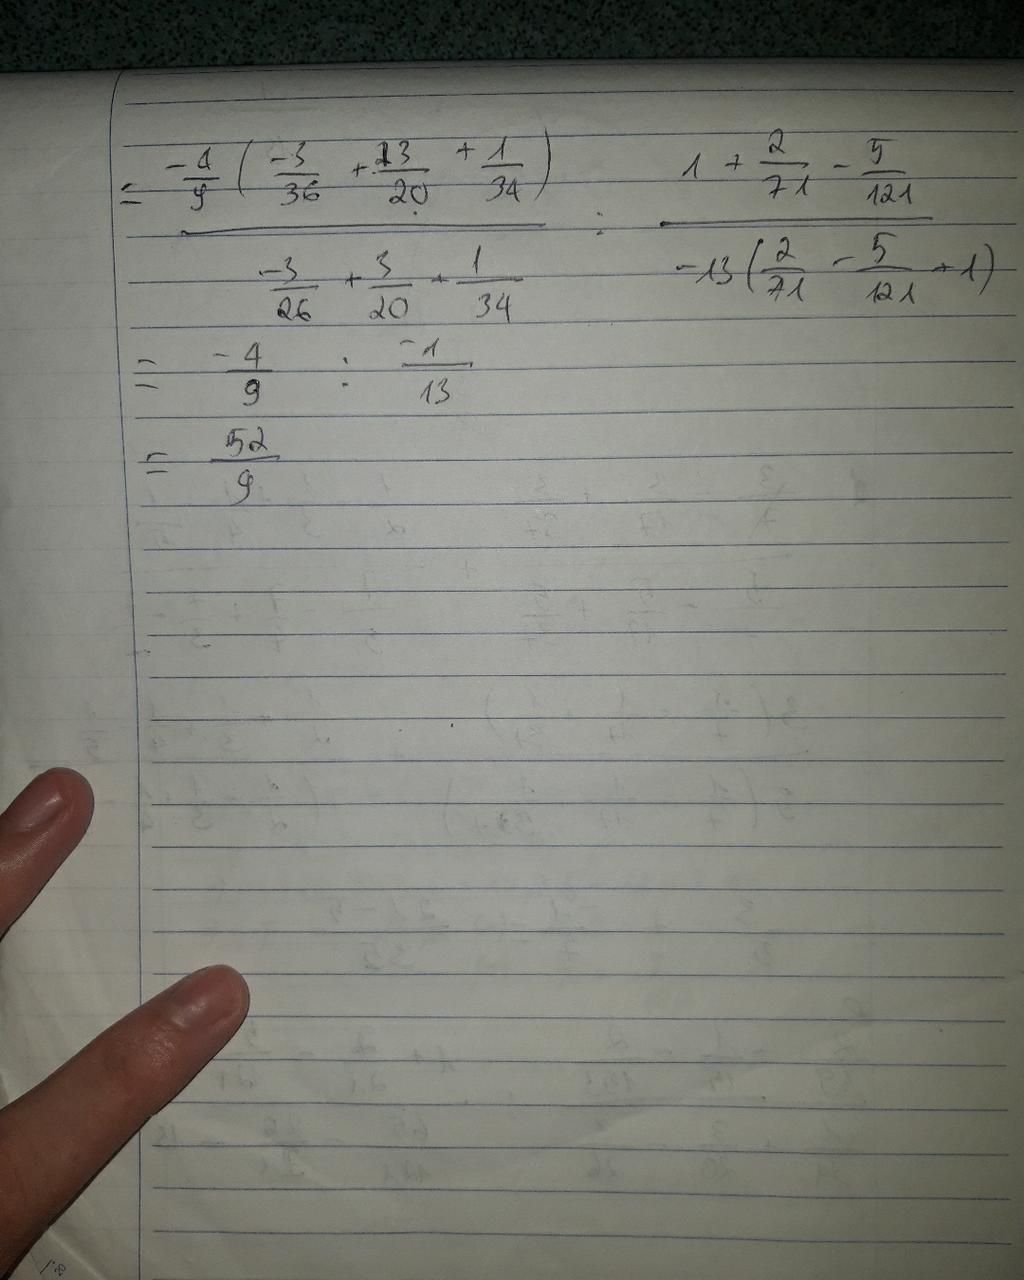 = -4/9 ( -3/36 + 13/20 + 1/34 ) / ( -3/26 + 3/20 + 1/34 ) : ( 1 + 2/71 - 5/121 ) / ( -13 ( 2/71 - 5/121 + 1 ) )
= -4/9 : -1/13
= 52/9